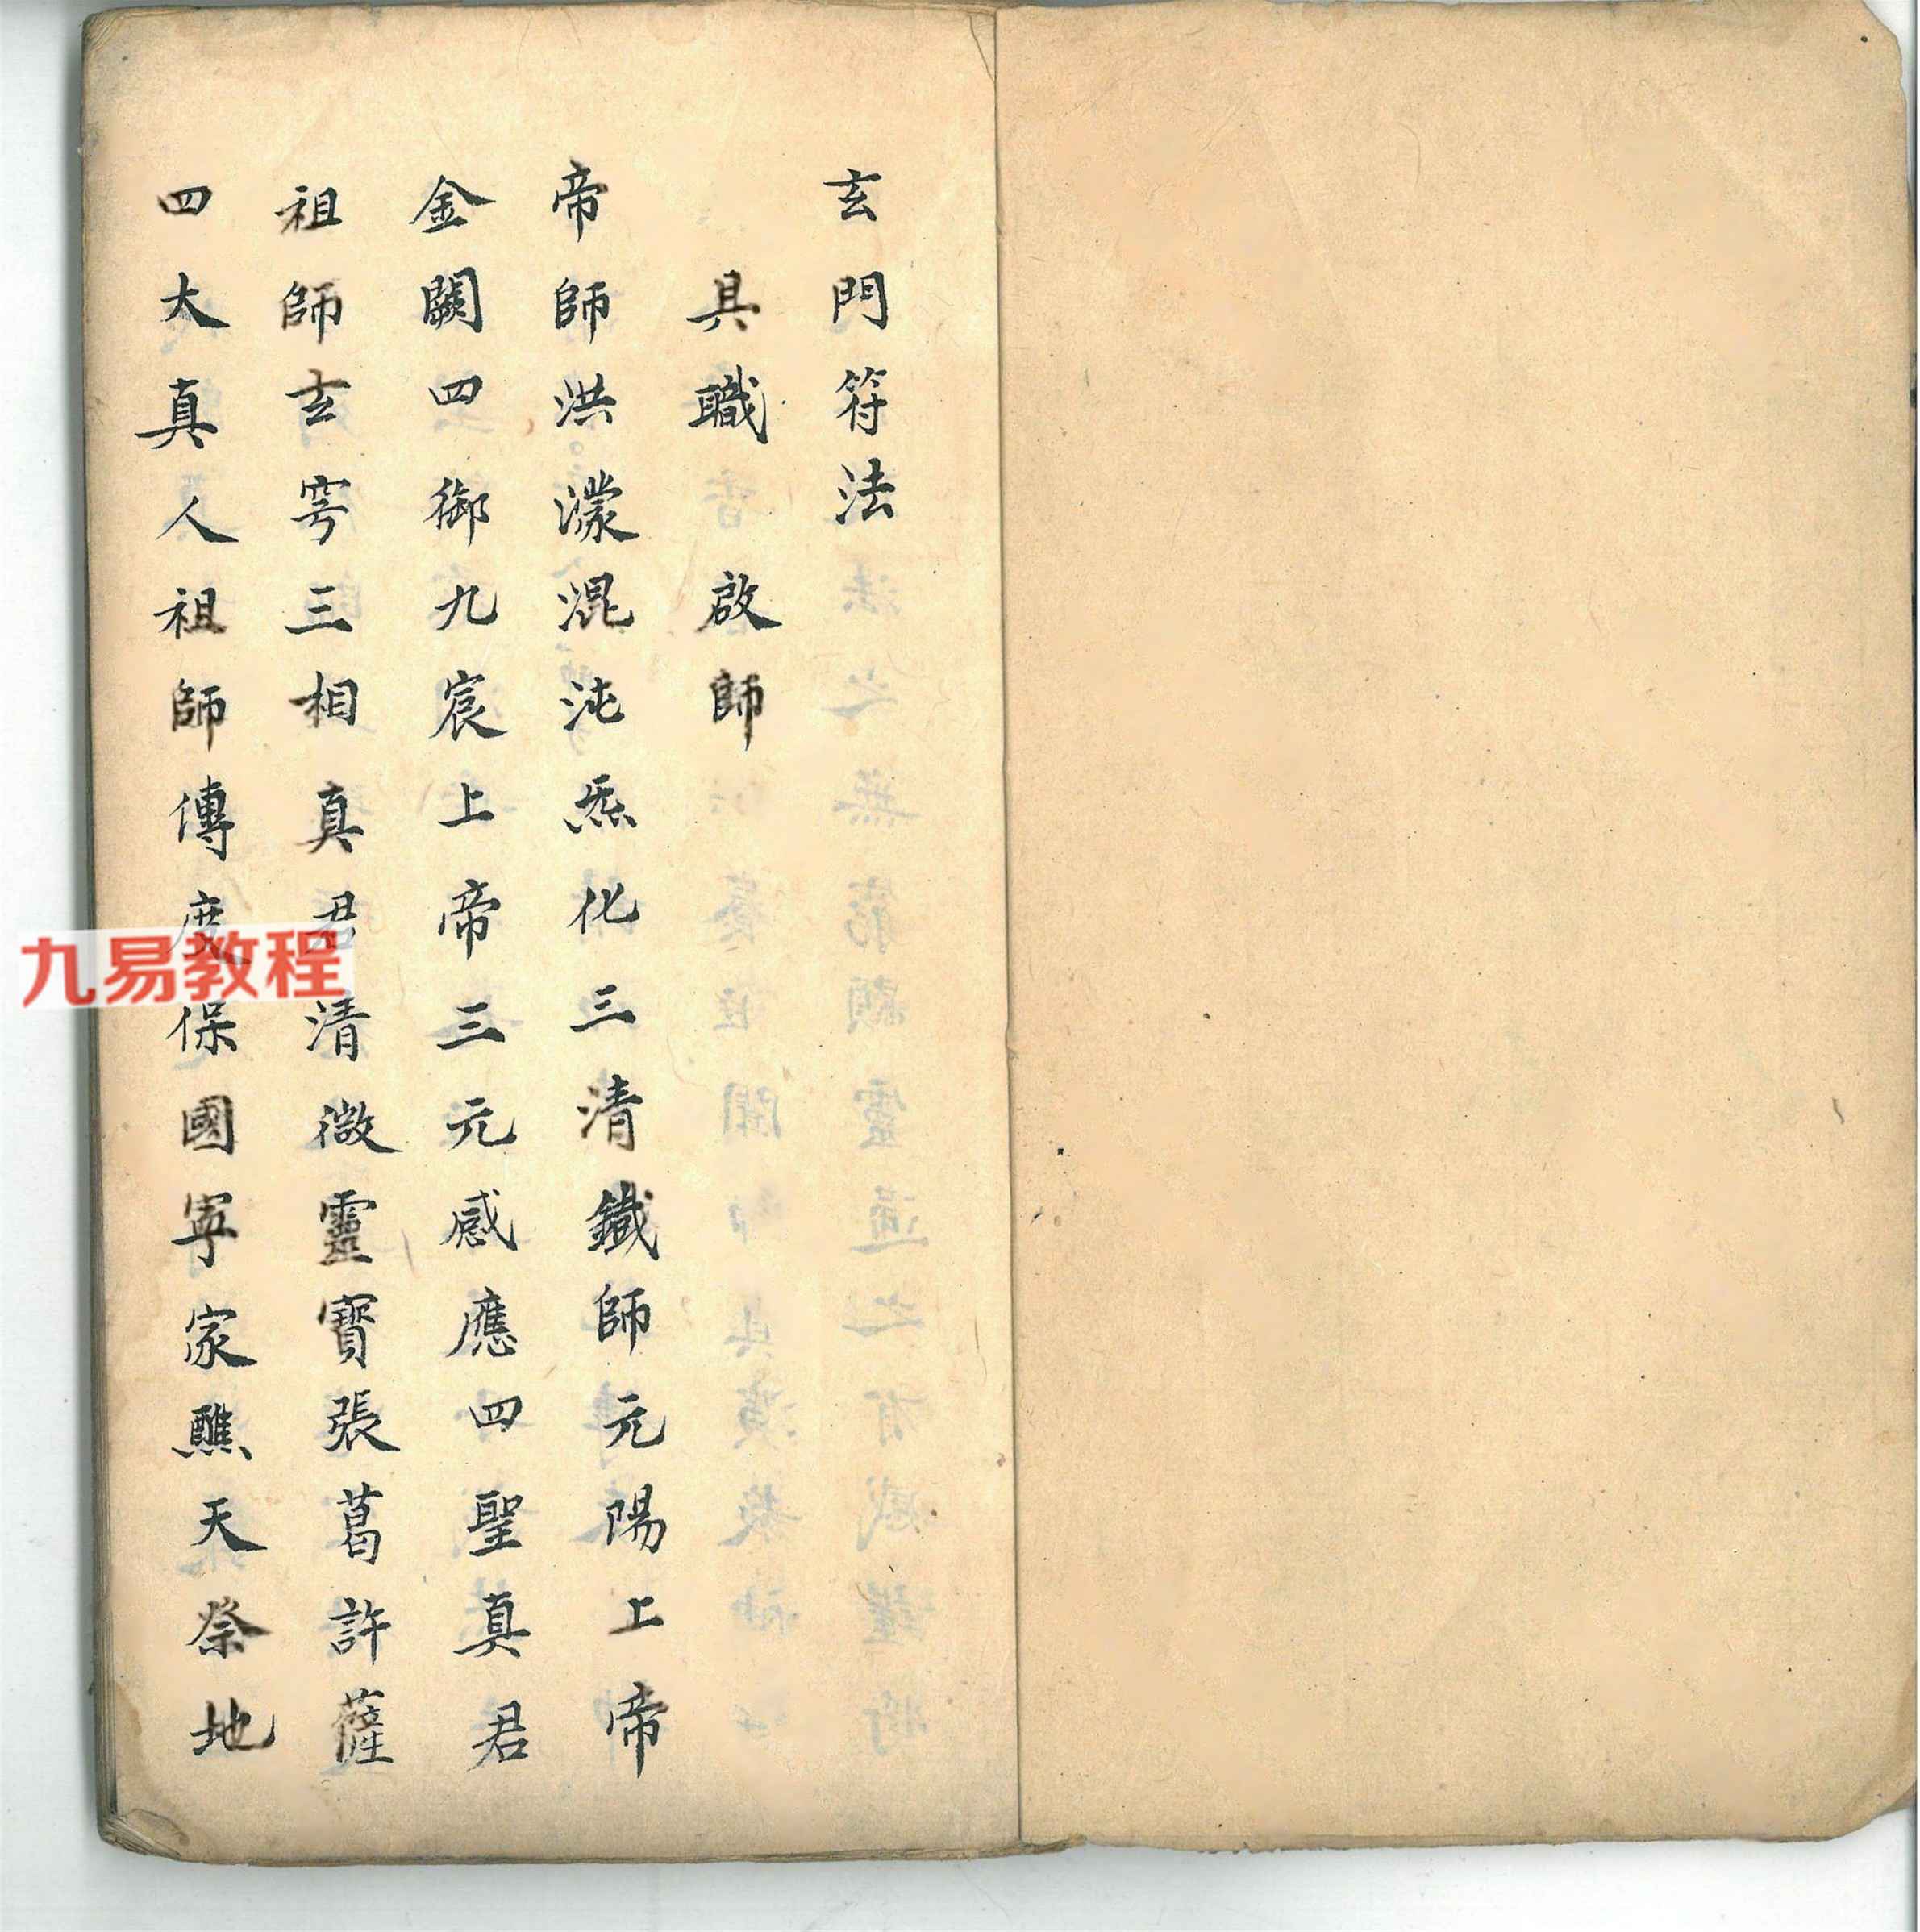 玄門符法
具職 啟師
帝師洪濛混沌炁化三清鐵師元陽上帝
金闕四御九宸上帝三元感應四聖真君
祖師玄穹三相真君清微靈寶張葛許薩
四大真人祖師傳度保國寧家醮天祭地
九易教程